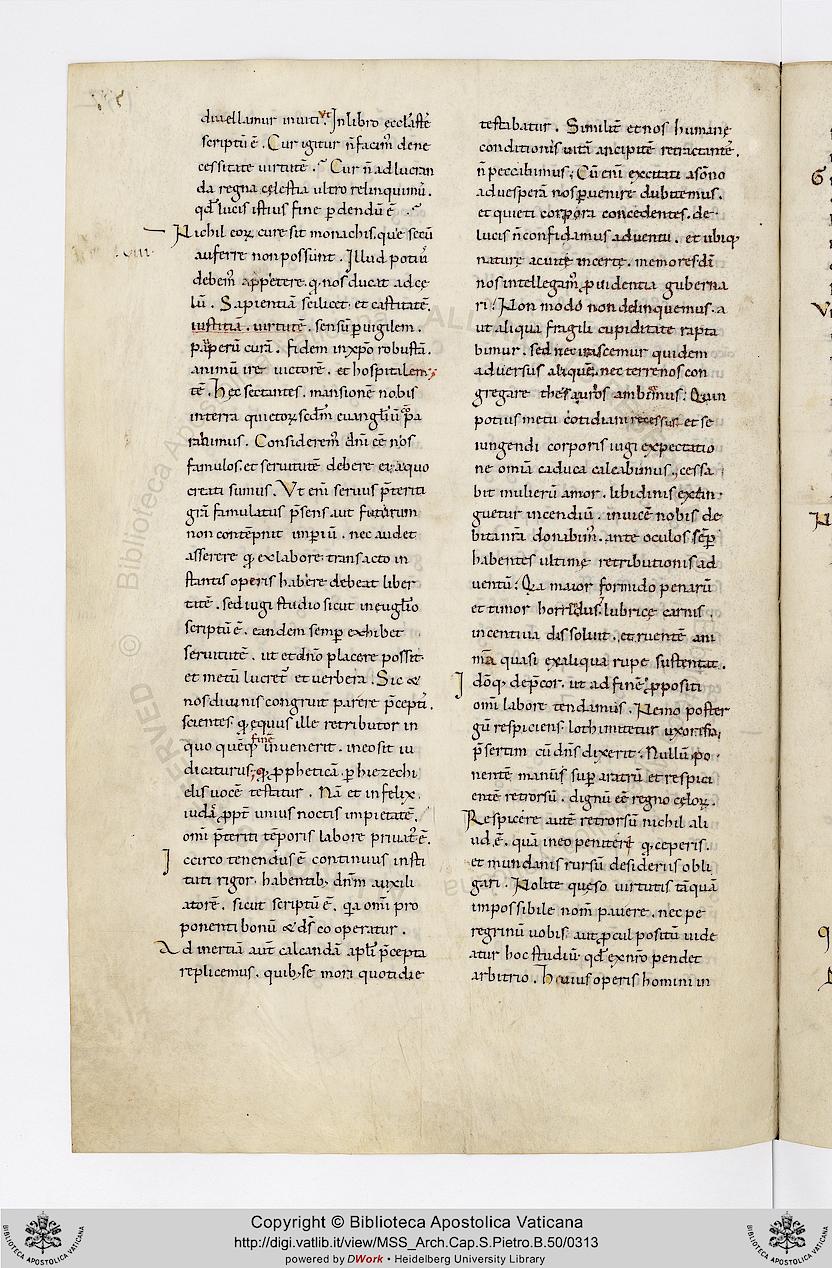 diuellamur inuiti. In libro eccl̄aste
scriptū ē. Cur igitur n̄ facim̄ de ne
cessitate uirtutē. Cur n̄ ad lucran
da regna cęlestia ultro relinquimus.
qd̄ lucis istius fine ꝑdendū ē.
Nichil eoꝝ cure sit monachis. quę secū
auferre non possunt. Illud potiꝰ
debem̄ appetere. ꝙ nos ducat ad cę
lū. Sapientiā scilicet. et castitatē.
iustitia. uirtutē. sensū ꝑuigilem.
pauperū curā. fidem in xp̄o robustā.
animū irę uictorē. et hospitalem
tē. Hęc sectantes. mansionē nobis
in terra quietoꝝ scd̄m euangł̄iū pꝑa
rabimus. Considerem̄ dn̄i eē nos
famulos. et seruitutē debere ei. a quo
creati sumus. Vt eni̅ seruus p̄teriti
gr̄a famulatus p̄sens aut futurum
non contēpnit imꝑiū. nec audet
asserere ꝙ ex labore transacto in
stantis operis habere debeat liber
tatē. sed iugi studio sicut in eugl̄io
scriptū ē. eandem semꝑ exhibet
seruitutē. ut et dn̄o placere possit
et metū lucret̄ et uerbera. Sic &
nos diuinis congruit parere p̄cepti.
scientes ꝙ ęquus ille retributor in
quo quēq; fine inuenerit. in eo sit iu
dicaturus. ꝙ ꝓphetica ꝑ hiezechi
elis uocē testatur. Nā et infelix
iudas ꝓpt̄ unius noctis impietatē.
omi̅ p̄teriti tēporis labore priuatꝰ ē.
Iccirco tenendus ē continuus insti
tuti rigor. habentib; dn̄m auxili
atorē. sicut scriptū ē. qa omi̅ pro
ponenti bonū & ds̄ cooperatur.
Ad inertiā aut̄ calcandā apl̄i p̄cepta
replicemus. quib; se mori quotidie
testabatur. Similit̄ et nos humanę
conditionis uitā ancipitē retractantes.
n̄ peccabimus. Cū eni̅ excitati a sōno
ad uesperā nos ꝑuenire dubitemus.
et quieti corpora concedentes. de
lucis n̄ confidamus aduentu. et ubiq;
naturę ac uitę incertę. memores di̅
nos intellegam̄ ꝓuidentia guberna
ri. Non modo non delinquemus. a
ut aliqua fragili cupiditate rapta
bimur. sed nec irascemur quidem
aduersus aliquē. nec terrenos con
gregare thesauros ambimus. Quin
potius metu cotidiani recessus et se
iungendi corporis iugi expectatio
ne omia̅ caduca calcabimus. cessa
bit mulierū amor. libidinis extin
guetur incendiū. inuicē nobis de
bita nr̄a donabim̄. ante oculos semꝑ
habentes ultimę retributionis ad
uentū. Qa maior formido penarū
et timor horridus. lubricę carnis
incentiua dissoluit. et ruentē ani
mā quasi ex aliqua rupe sustentat.
Idōq; dep̄cor. ut ad finē ꝓpositi
omi̅ labore tendamus. Nemo poster
gū respiciens. loth imitetur uxorem.
p̄sertim cū dn̄s dixerit. Nullū po
nentē manū suꝑ aratrū et respici
entē retrorsū. dignū eē regno cęloꝝ.
Respicere autē retrorsū nichil ali
ud ē. quā in eo penitere ꝙ ceperis.
et mundanis rursū desideriis obli
gari. Nolite queso uirtutis tāquā
impossibile nom̄ pauere. nec pe
regrinū uobis aut ꝓcul positū uide
atur hoc studiū. qd̄ ex nr̄o pendet
arbitrio. Huius operis homini in
Copyright © Biblioteca Apostolica Vaticana
http://digi.vatlib.it/view/MSS_Arch.Cap.S.Pietro.B.50/0313
powered by DWork • Heidelberg University Library